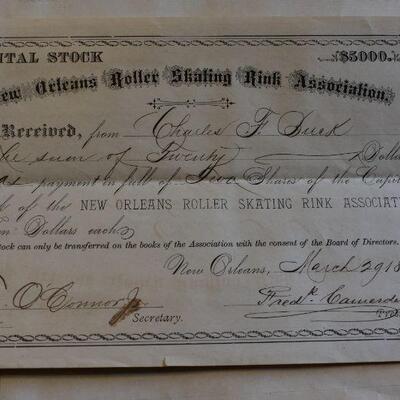 ITAL STOCK $5000.
ew Orleans Roller Skating Rink Association.
Received, from Charles F. Buck
he sum of Twenty Dolla
as payment in full of Two Shares of the Capi
k of the NEW ORLEANS ROLLER SKATING RINK ASSOCIAT
en Dollars each
tock can only be transferred on the books of the Association with the consent of the Board of Directors.
New Orleans, March 29 18
O'Connor Jr. Fredk. Camerde
Secretary. Pre